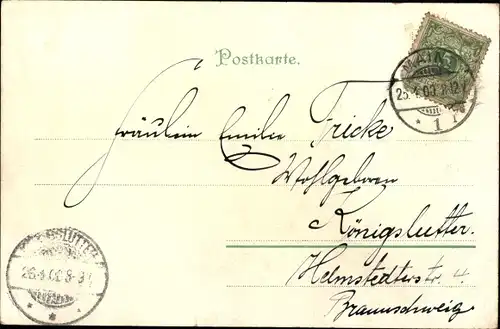 Postkarte.
MAINZ
25.4.00. 8-12
* 1 r
Fräulein Emilie Fricke
Wohlgeboren
Königslutter.
Helmstedterstr. 4.
Braunschweig
26.4.00. 8-9